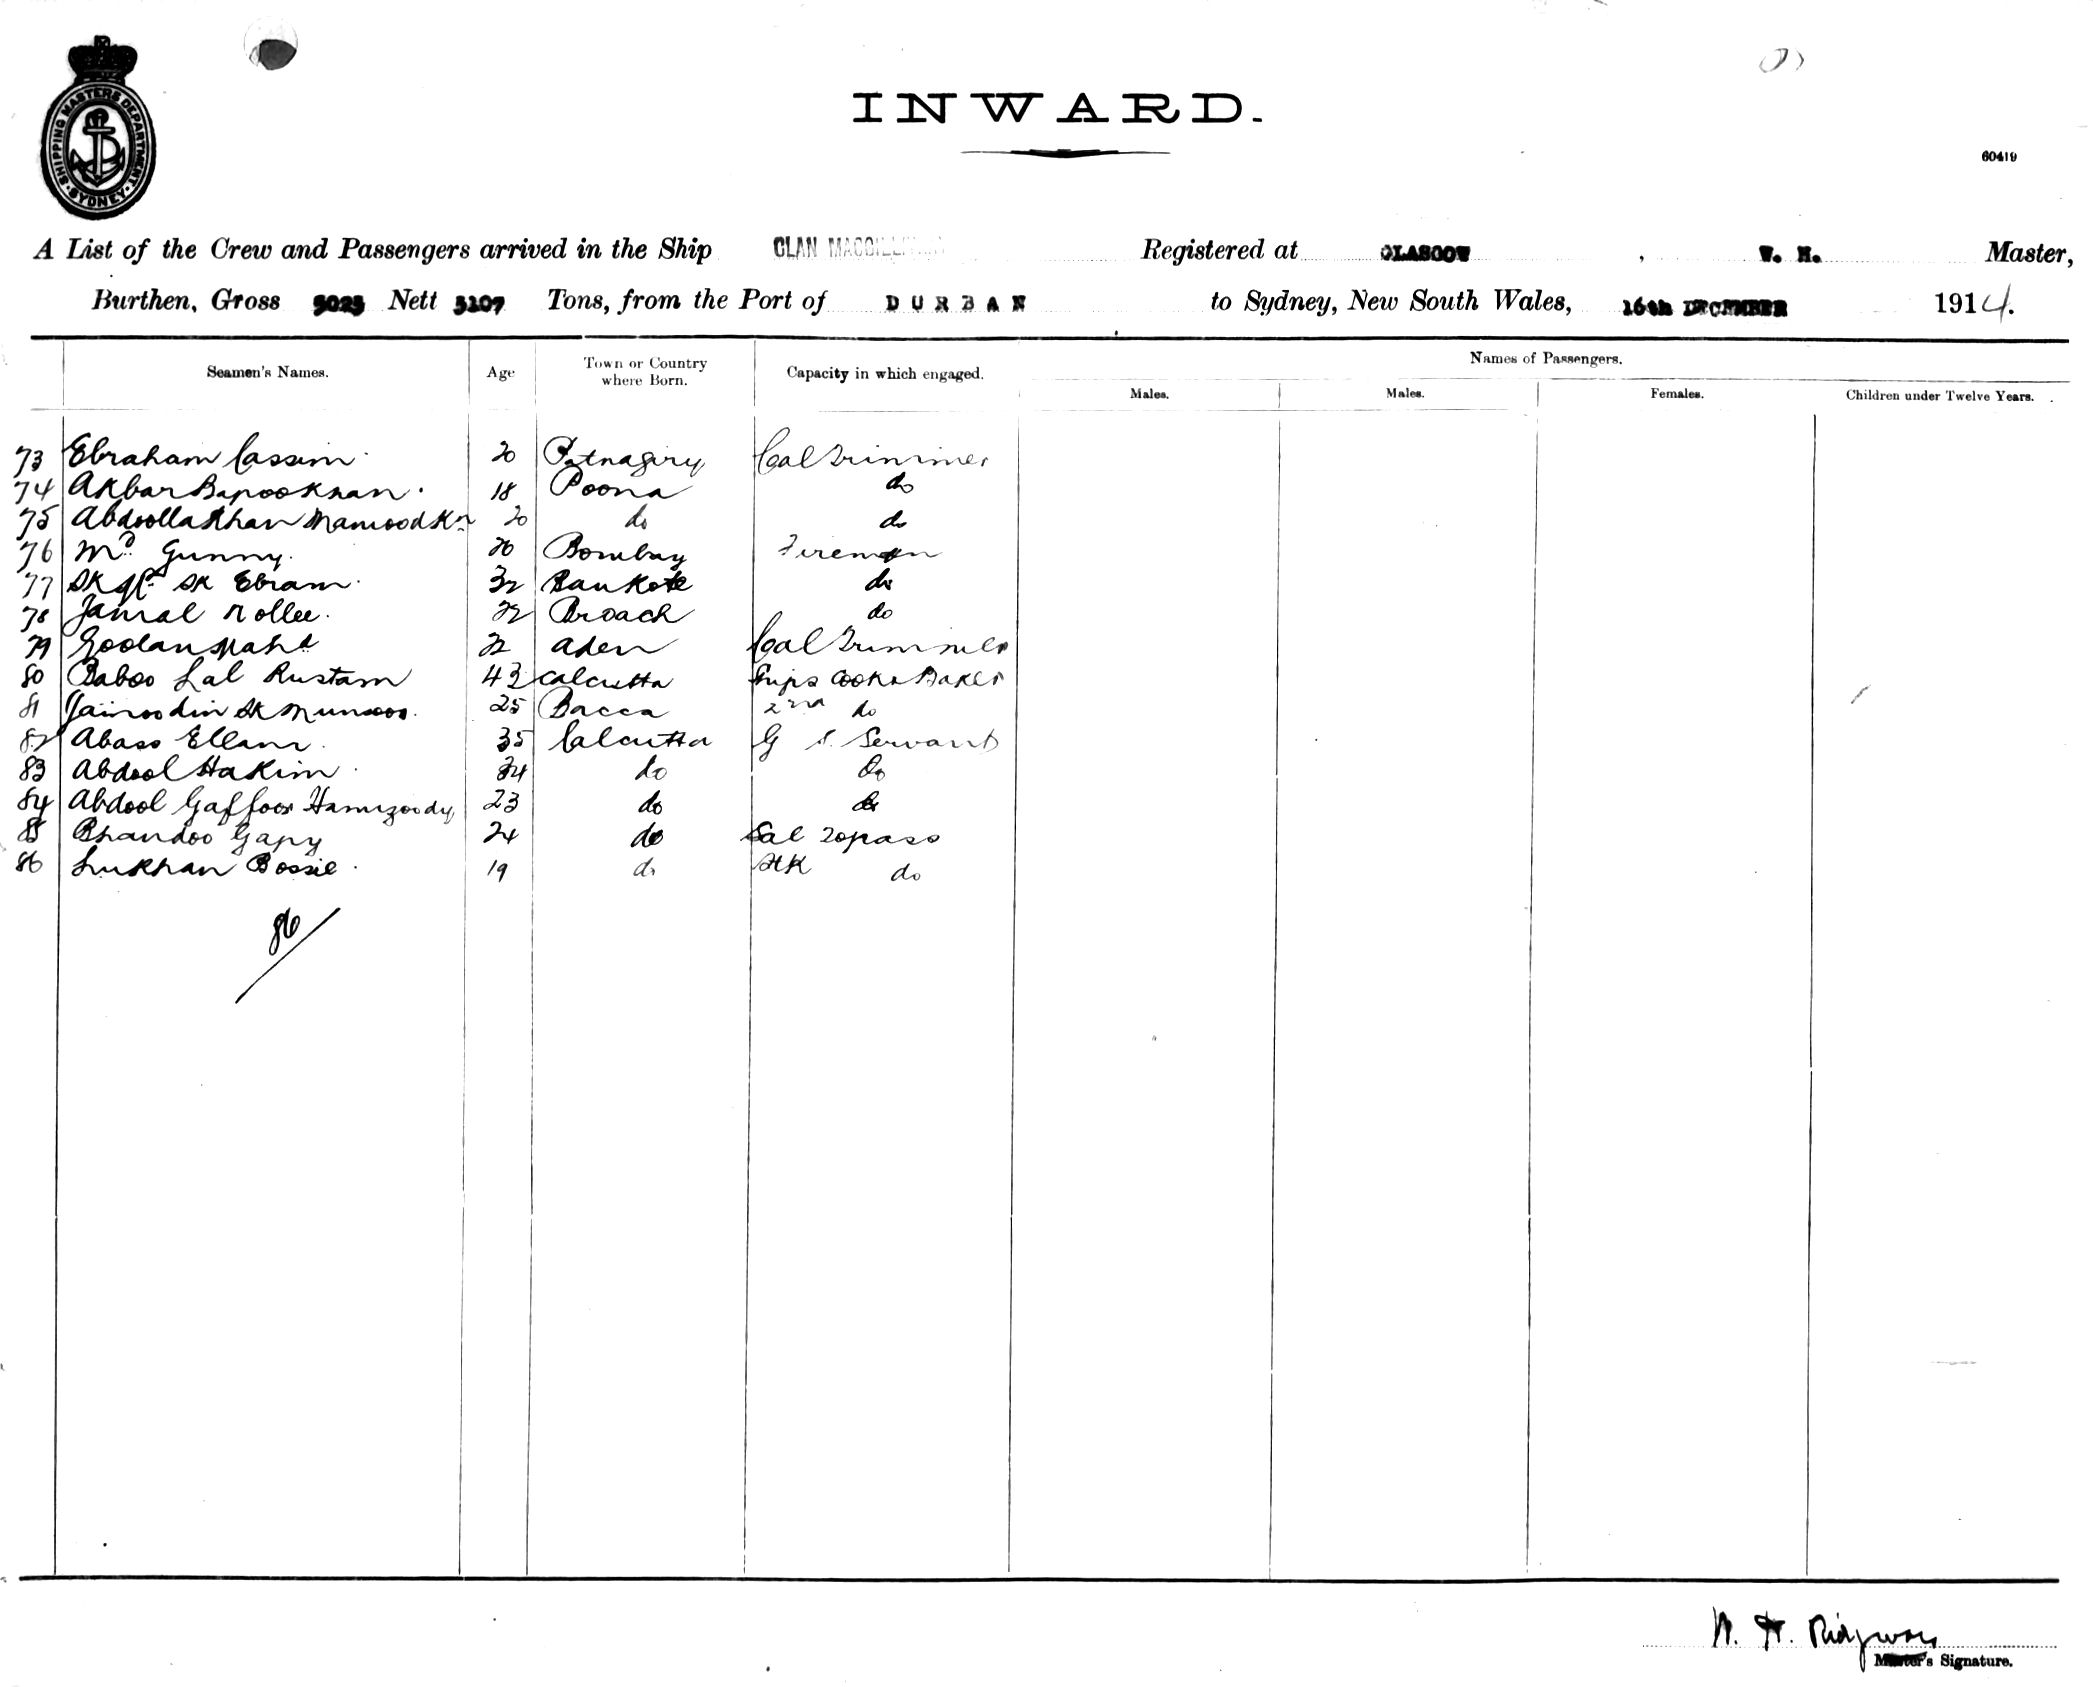 SHIPPING MASTERS DEPARTMENT. SYDNEY
INWARD.
60419
A List of the Crew and Passengers arrived in the Ship CLAN Registered at GLASGOW , W. H. Master,
Burthen, Gross 5023 Nett 3107 Tons, from the Port of DURBAN to Sydney, New South Wales, 16th DECEMBER 1914.
Seamen's Names. Age Town or Country where Born. Capacity in which engaged. Names of Passengers.
Males. Males. Females. Children under Twelve Years.
73 Ebraham Cassim 20 Coal Trimmer
74 Akbar Bapookhan 18 Poona do
75 Abdoolla Khan Mamood Kn 20 do do
76 Md Gunny 26 Bombay Fireman
77 SK SK Ebram 32 Bankote do
78 Jamal 22 Broach do
79 Aden Coal Trimmer
80 Baboo Lal Rustam 43 Calcutta Ships Cook & Baker
81 Jainoodin SK Munsoor 25 Bacca 2nd do
82 Abass Ellam 35 Calcutta G S. Servant
83 Abdool Hakim 24 do do
84 Abdool Gaffoor 23 do do
85 Bhandoo Gapy 24 do Sal Topass
86 Lukhan Bossie 19 do do
86
W. H. Ridgway
Master's Signature.